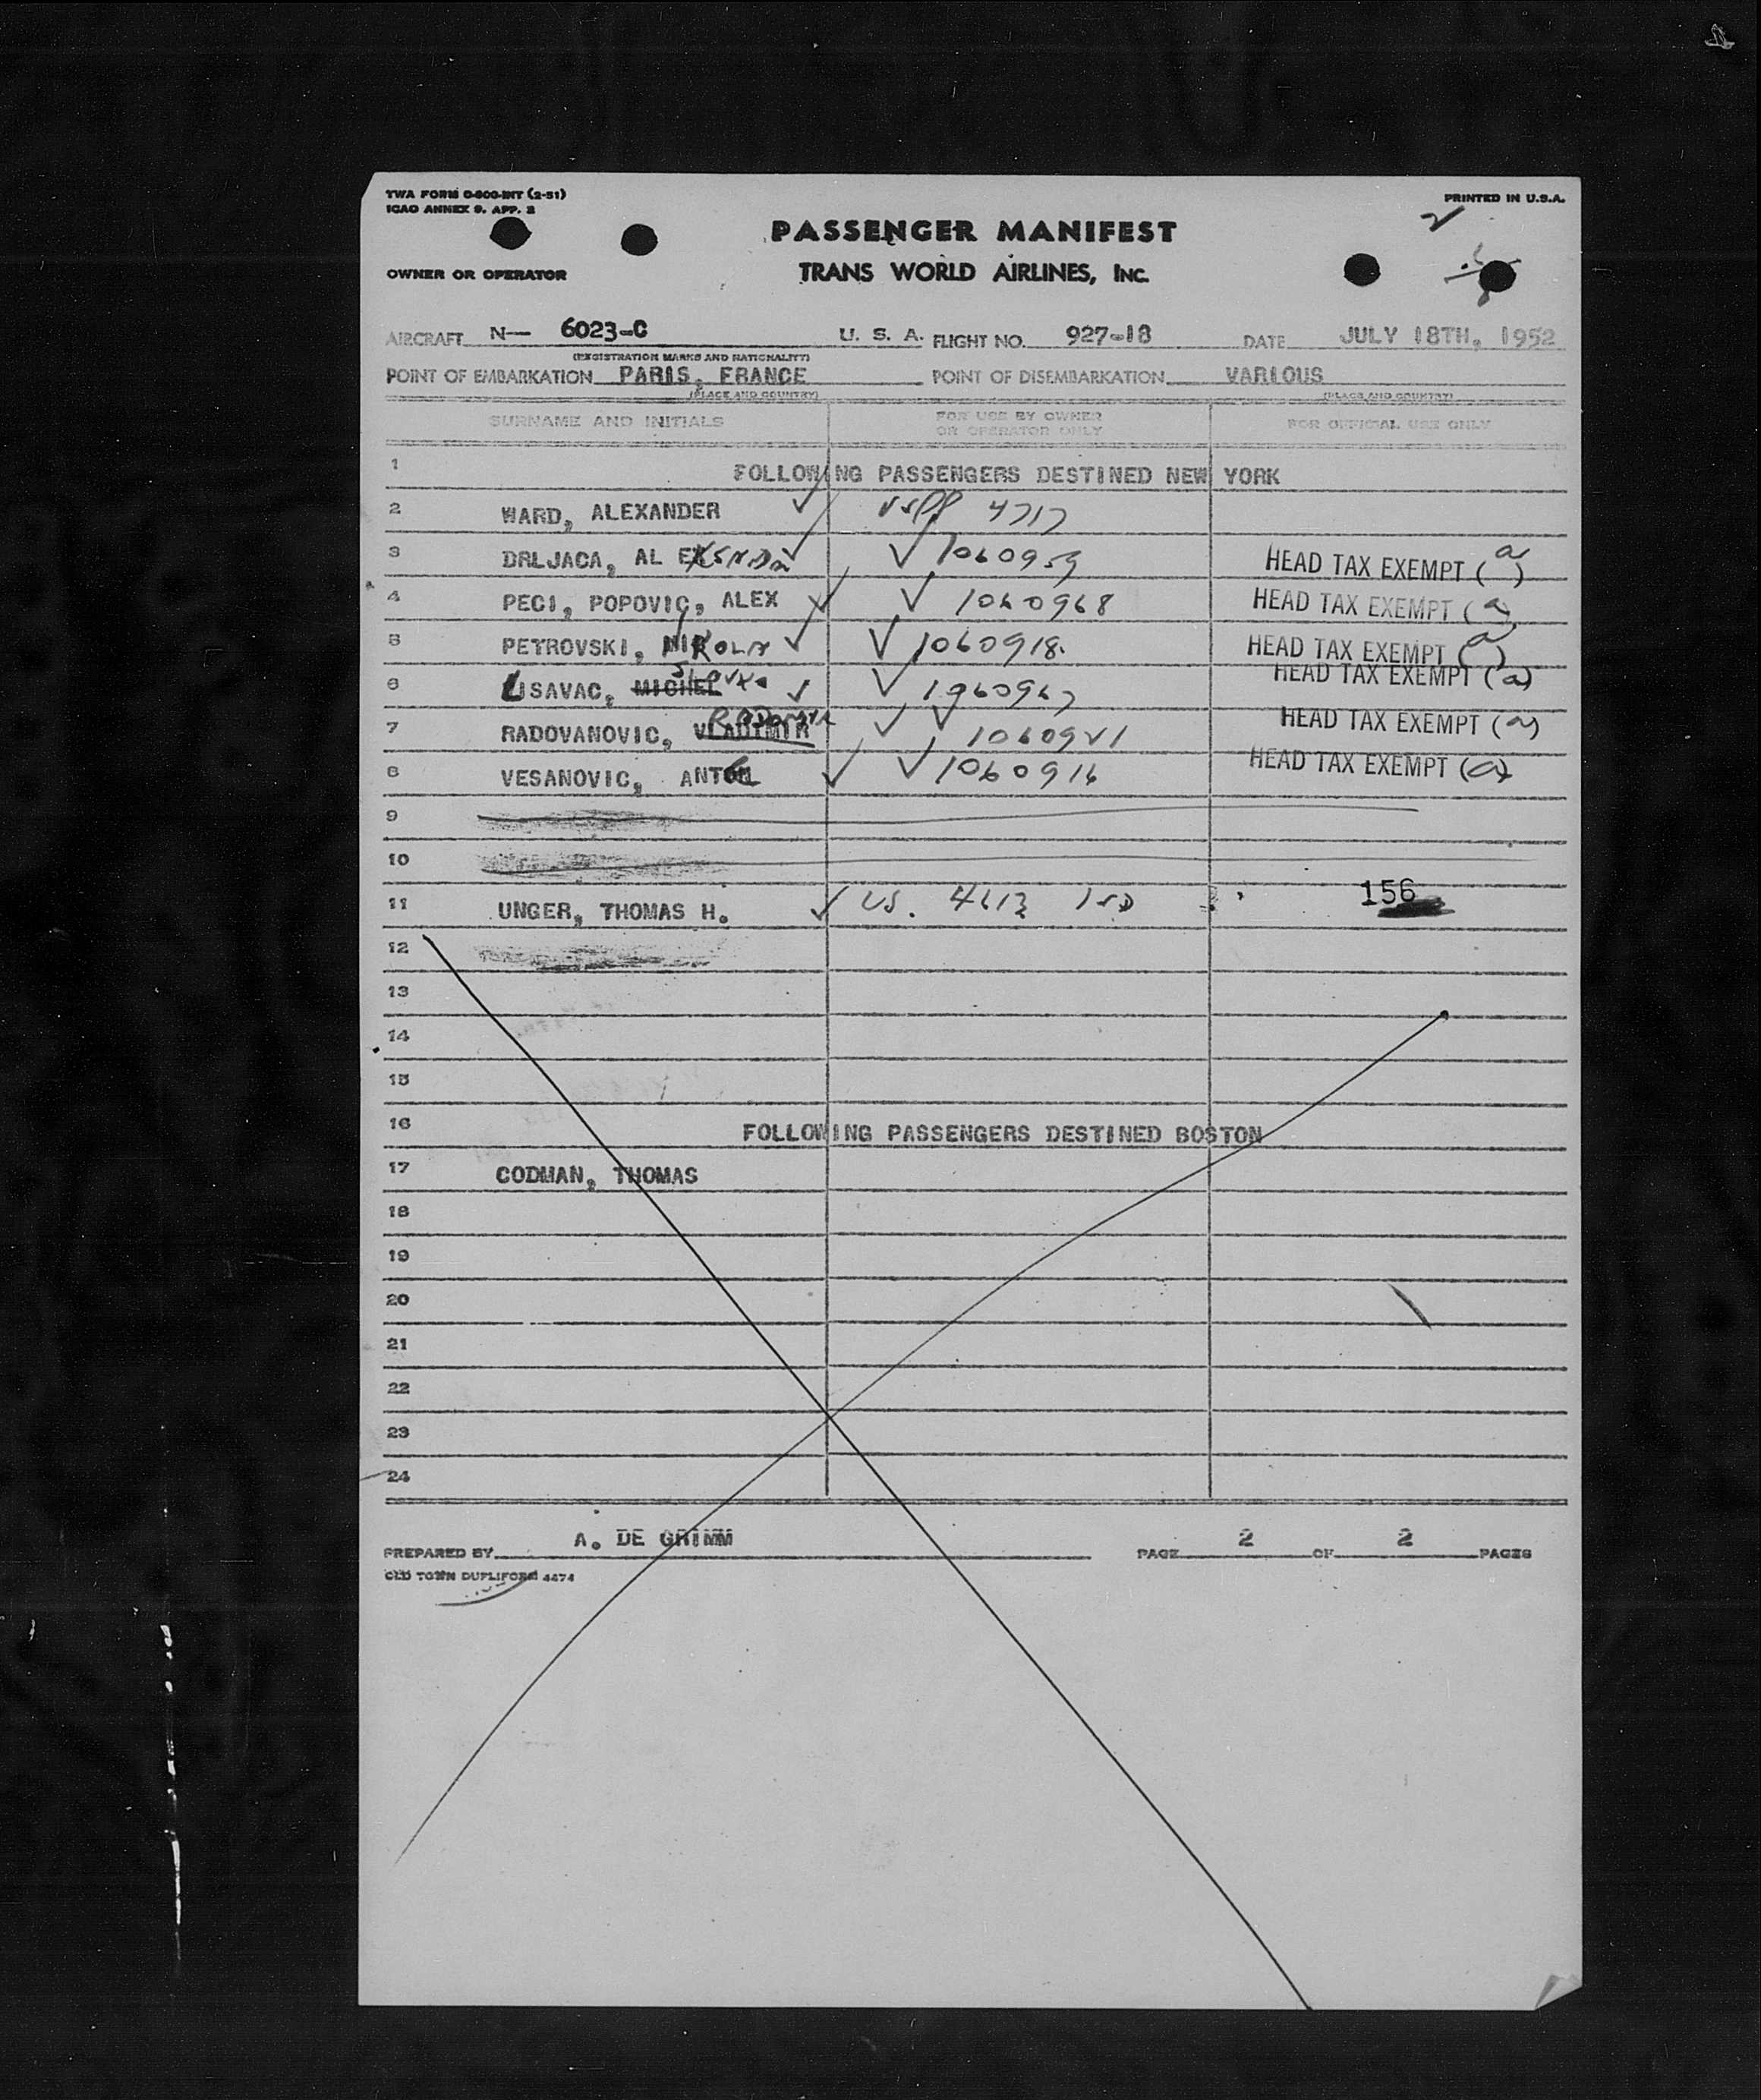 TWA FORM O-800-INT (2-51)
ICAO ANNEX 9. APP. 2
PRINTED IN U.S.A.
PASSENGER MANIFEST
OWNER OR OPERATOR TRANS WORLD AIRLINES, INC.
AIRCRAFT N— 6023-C U. S. A. FLIGHT NO. 927-18 DATE JULY 18TH, 1952
(REGISTRATION MARKS AND NATIONALITY)
POINT OF EMBARKATION PARIS, FRANCE POINT OF DISEMBARKATION VARIOUS
(PLACE AND COUNTRY) (PLACE AND COUNTRY)
SURNAME AND INITIALS FOR USE BY OWNER OR OPERATOR ONLY FOR OFFICIAL USE ONLY
1 FOLLOWING PASSENGERS DESTINED NEW YORK
2 WARD, ALEXANDER ✓ USPP 4717
3 DRLJACA, AL ✓ ✓ 1060959 HEAD TAX EXEMPT (a)
4 PECI, POPOVIC, ALEX ✓ ✓ 1060968 HEAD TAX EXEMPT (a)
5 PETROVSKI, NIKOLA ✓ ✓ 1060918 HEAD TAX EXEMPT (a)
6 LISAVAC, MICHEL ✓ ✓ 1060967 HEAD TAX EXEMPT (a)
7 RADOVANOVIC, VLADIMIR RADOMIR ✓ ✓ 1060921 HEAD TAX EXEMPT (a)
8 VESANOVIC, ANTE ✓ ✓ 1060916 HEAD TAX EXEMPT (a)
9
10
11 UNGER, THOMAS H. ✓ US. 4613 156
12
13
14
15
16 FOLLOWING PASSENGERS DESTINED BOSTON
17 CODMAN, THOMAS
18
19
20
21
22
23
24
PREPARED BY A. DE GRIMM PAGE 2 OF 2 PAGES
OLD TOWN DUPLIFORM 4474